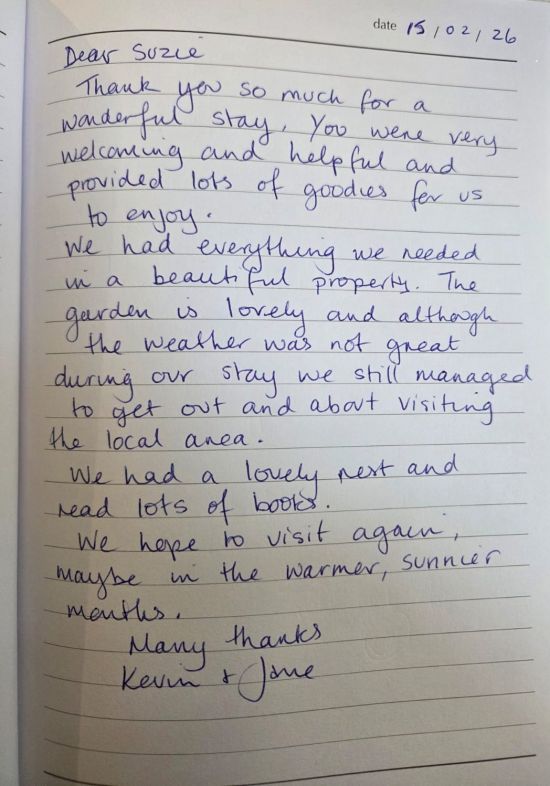 date 15/02/26
Dear Suzie
Thank you so much for a
wonderful stay. You were very
welcoming and helpful and
provided lots of goodies for us
to enjoy.
We had everything we needed
in a beautiful property. The
garden is lovely and although
the weather was not great
during our stay we still managed
to get out and about visiting
the local area.
We had a lovely rest and
read lots of books.
We hope to visit again,
maybe in the warmer, sunnier
months.
Many thanks
Kevin & Jane